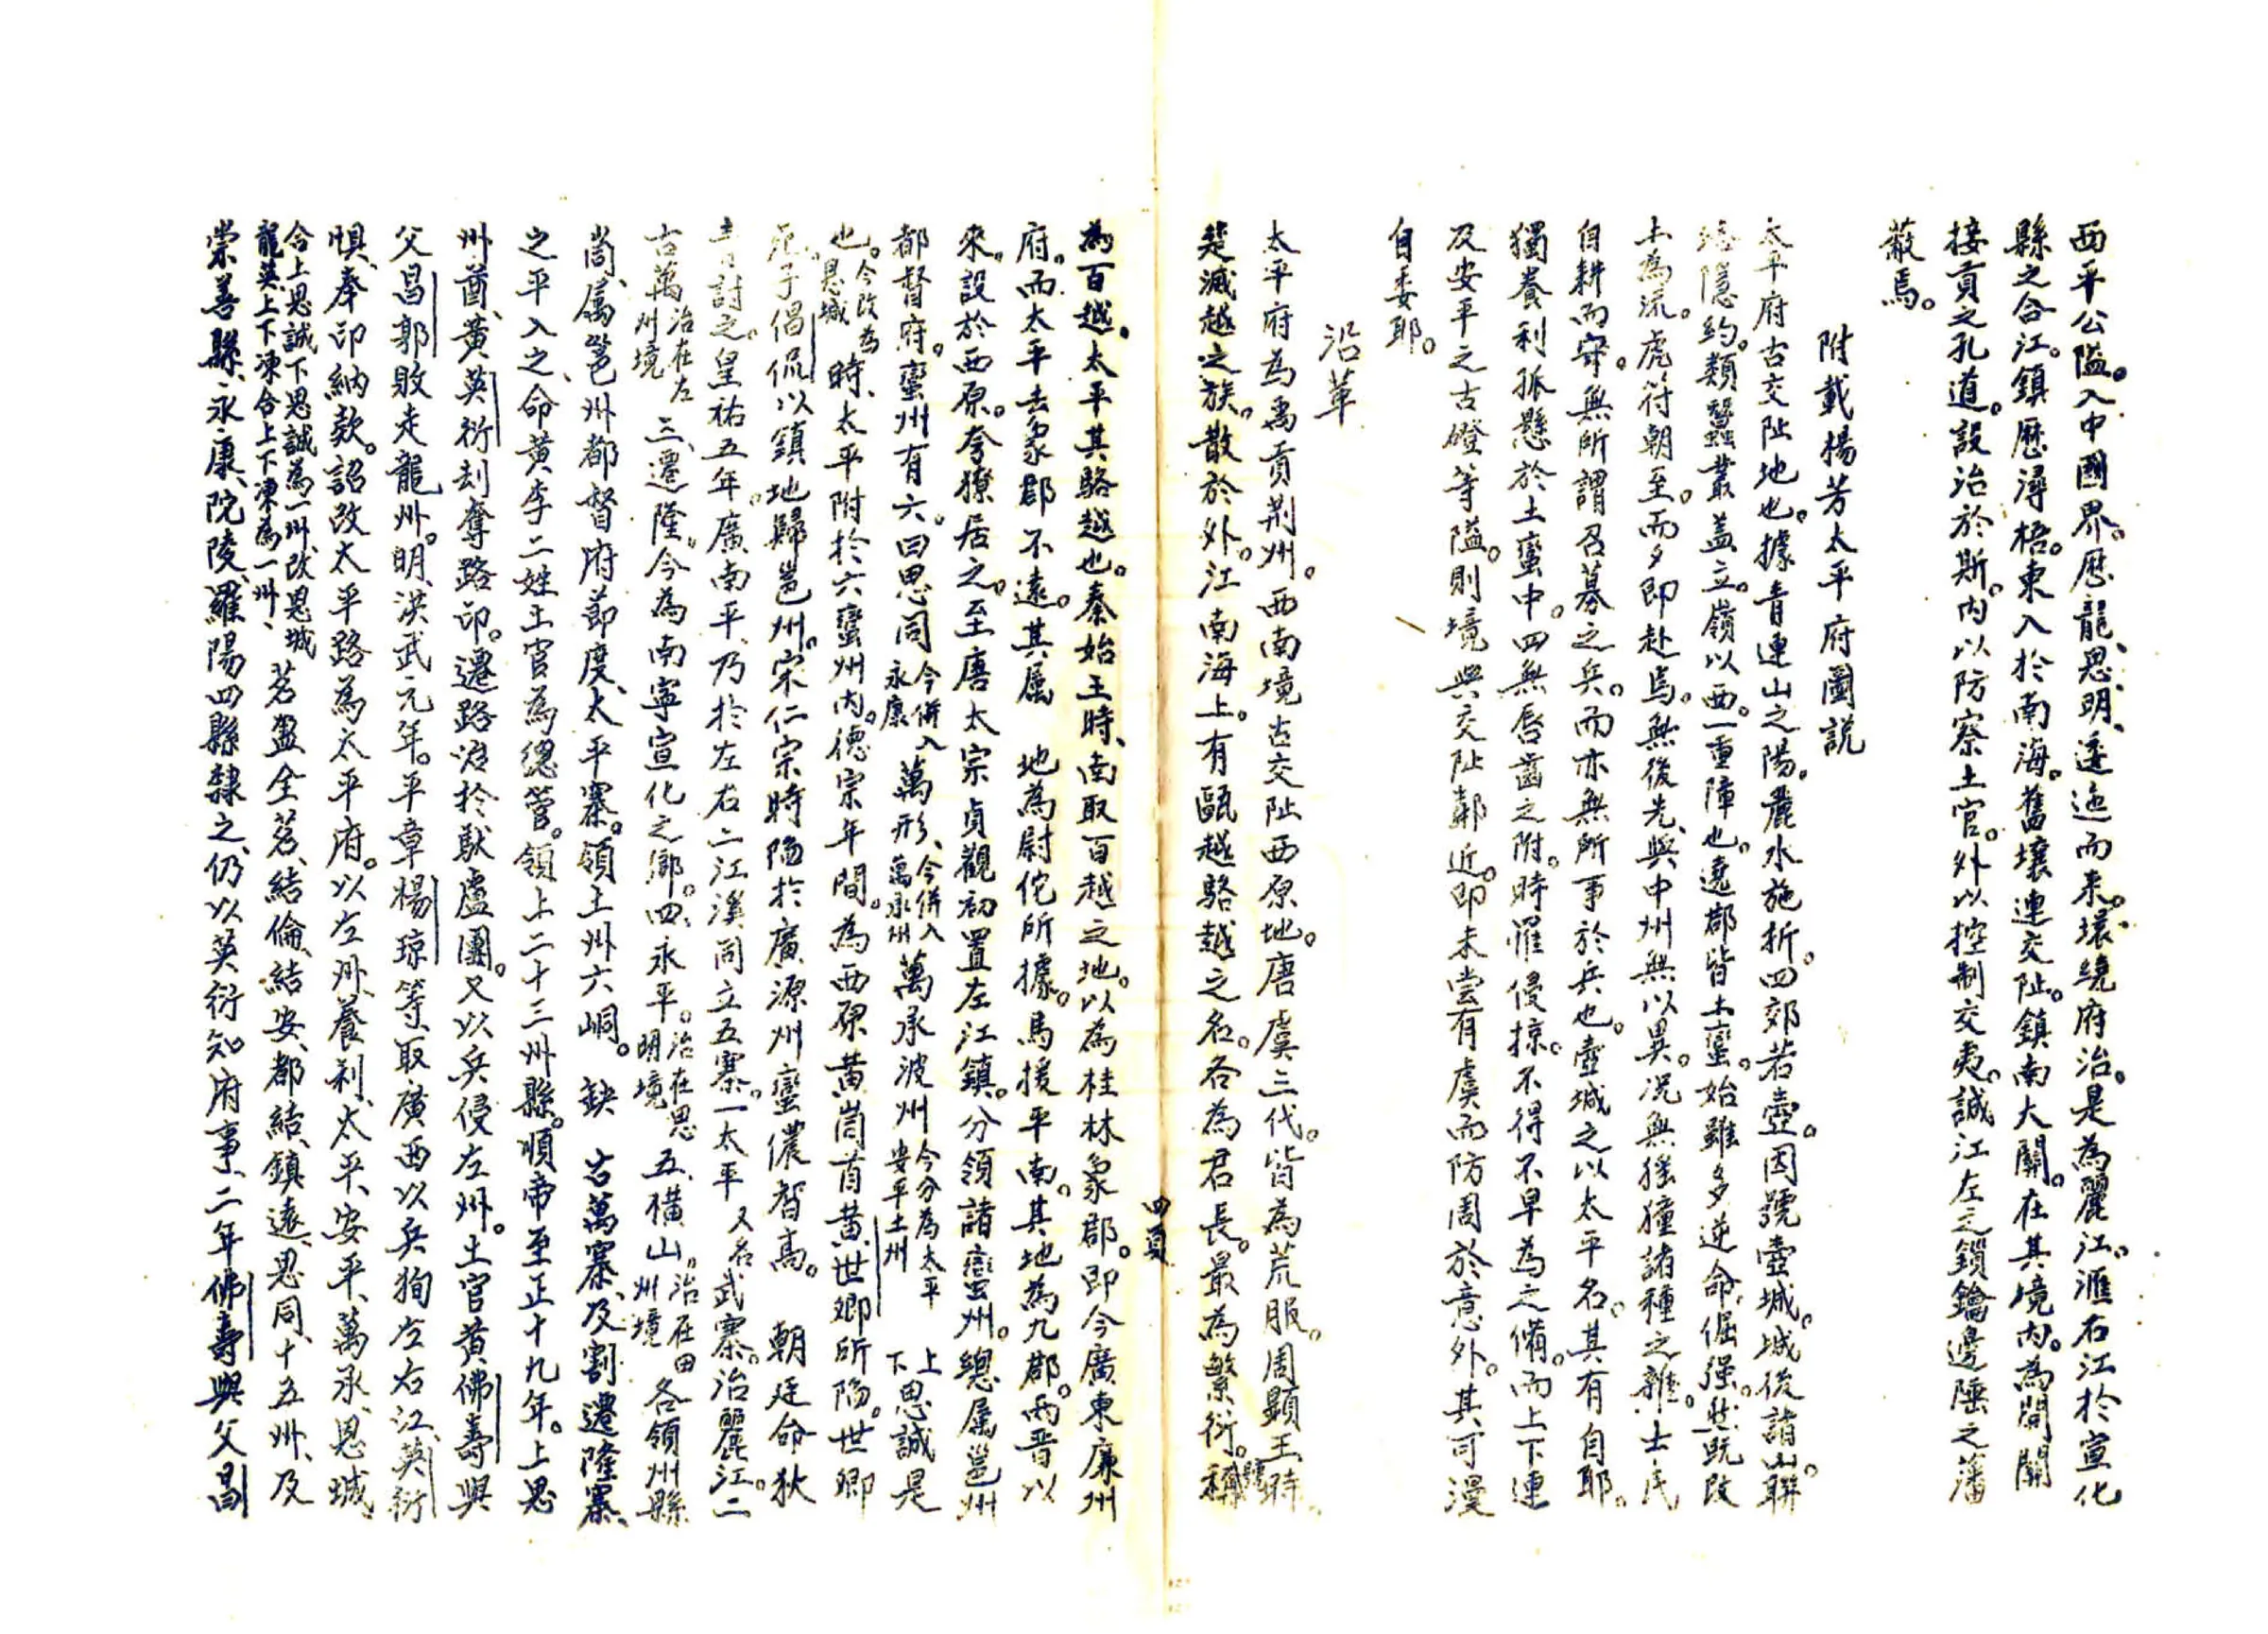 西平公隘。入中國界。歷龍、思明、逶迤而来。環繞府治。是為麗江。滙右江於宣化
縣之合江。鎮歷潯梧。東入於南海。舊壤連交阯。鎮南大關。在其境内。為開關
接貢之孔道。設治於斯。内以防察土官。外以控制交夷。誠江左之鎖鑰邊陲之藩
蔽焉。
附載楊芳太平府圖説
太平府古交阯地也。據青連山之陽。麗水施折。四郊若壺。因號壺城。城後諸山。聯
絡隱約。類蠶叢盖立。嶺以西。一重障也。遶郡皆土蠻。始雖多逆命。倔强。然既改
土為流。虎符朝至。而夕即赴焉。無後先、與中州無以異。况無猺獞諸種之雜。士民
自耕而守。無所謂召募之兵。而亦無所事於兵也。壺城之以太平名。其有自耶。
獨養利孤懸於土蠻中。四無唇齒之附。時罹侵掠。不得不早為之備。而上下連
及安平之古磴等隘。則境與交阯鄰近。即未嘗有虞而防周於意外。其可漫
自委耶。
沿革
太平府為禹貢荆州。西南境古交阯西原地。唐虞三代。皆為荒服。周顯王時。
楚滅越之族。散於外。江南海上。有甌越駱越之名。各為君長。最為繁衍。稱
四夏
為百越。太平其駱越也。秦始王時、南取百越之地。以為桂林象郡。即今廣東廉州
府。而太平去象郡不遠。其屬 地為尉佗所據。馬援平南。其地為九郡。兩晋以
來。設於西原。夸獠居之。至唐太宗貞觀初置左江鎮。分領諸蠻州。總属邕州
都督府。蠻州有六。曰思同今併入永康萬形、今併入萬承州萬承波州今分為太平安平土州上下思誠是
也。今改為思城時、太平附於六蠻州内。德宗年間。為西原黄峝首黄世鄉所陷。世卿
死。子倡侃以鎮地歸邕州。宋仁宗時陷於廣源州蠻儂智高。 朝廷命狄
青討之。皇祐五年。廣南平、乃於左右二江溪同立五寨。一太平又名武寨。治麗江。二
古萬治在左州境三、遷隆。今為南寧宣化之鄉。四、永平。治在思明境五、横山。治在田州境各領州縣
峝、属邕州都督府節度、太平寨。領土州六峒。缺 古萬寨、及割遷隆寨、
之平入之、命黄李二姓土官為總管。領上二十三州縣。順帝至正十九年。上思
州酋、黄英衍刦奪路印。遷路治於馱盧團。又以兵侵左州。土官黄佛壽與
父昌郭敗走龍州。明、洪武元年。平章楊琼等、取廣西以兵狥左右江、英衍
惧、奉印納款。詔改太平路為太平府。以左州、養利、太平、安平、萬承、思城
合上思誠下思誠為一州、改思城龍英上下凍合上下凍為一州、茗盈全茗、結倫、結安、都結、鎮遠、思同、十五州、及
崇善縣、永康、陀陵、羅陽四縣隸之、仍以英衍知府事、二年佛壽與父昌